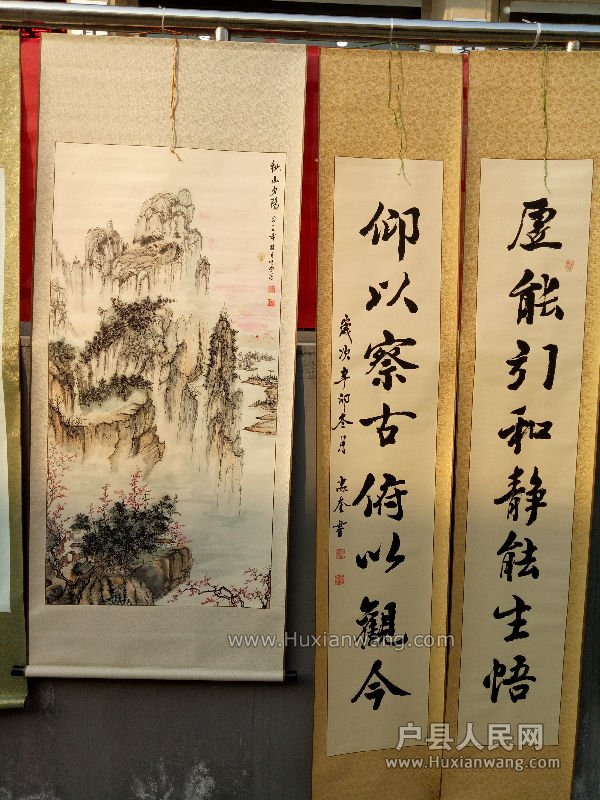 虚能引和静能生悟
仰以察古俯以觀今
歲次辛卯冬月 忠奎書
秋山夕陽
www.Huxianwang.com
户县人民网
www.Huxianwang.com